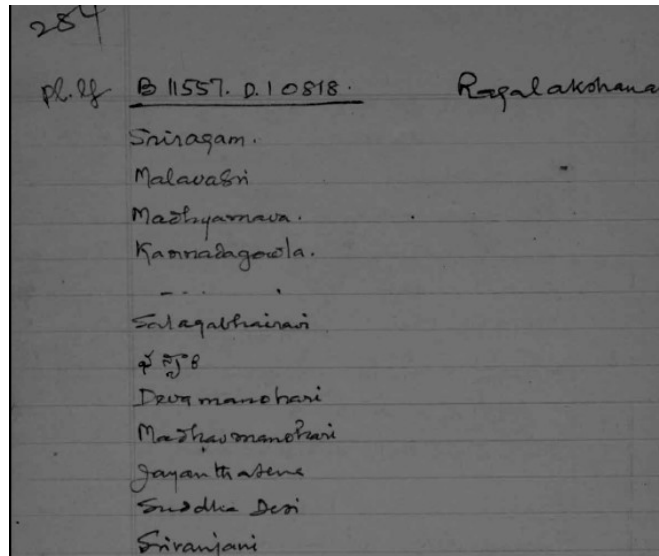 284
pl. lf B 11557. D. 10818. Ragalakshana
Sriragam.
Malavasri
Madhyamava.
Kannadagowla.
- - - .
Salagabhairavi
Devamanohari
Madhavmanohari
Jayanthasena
Suddha Desi
Sriranjani